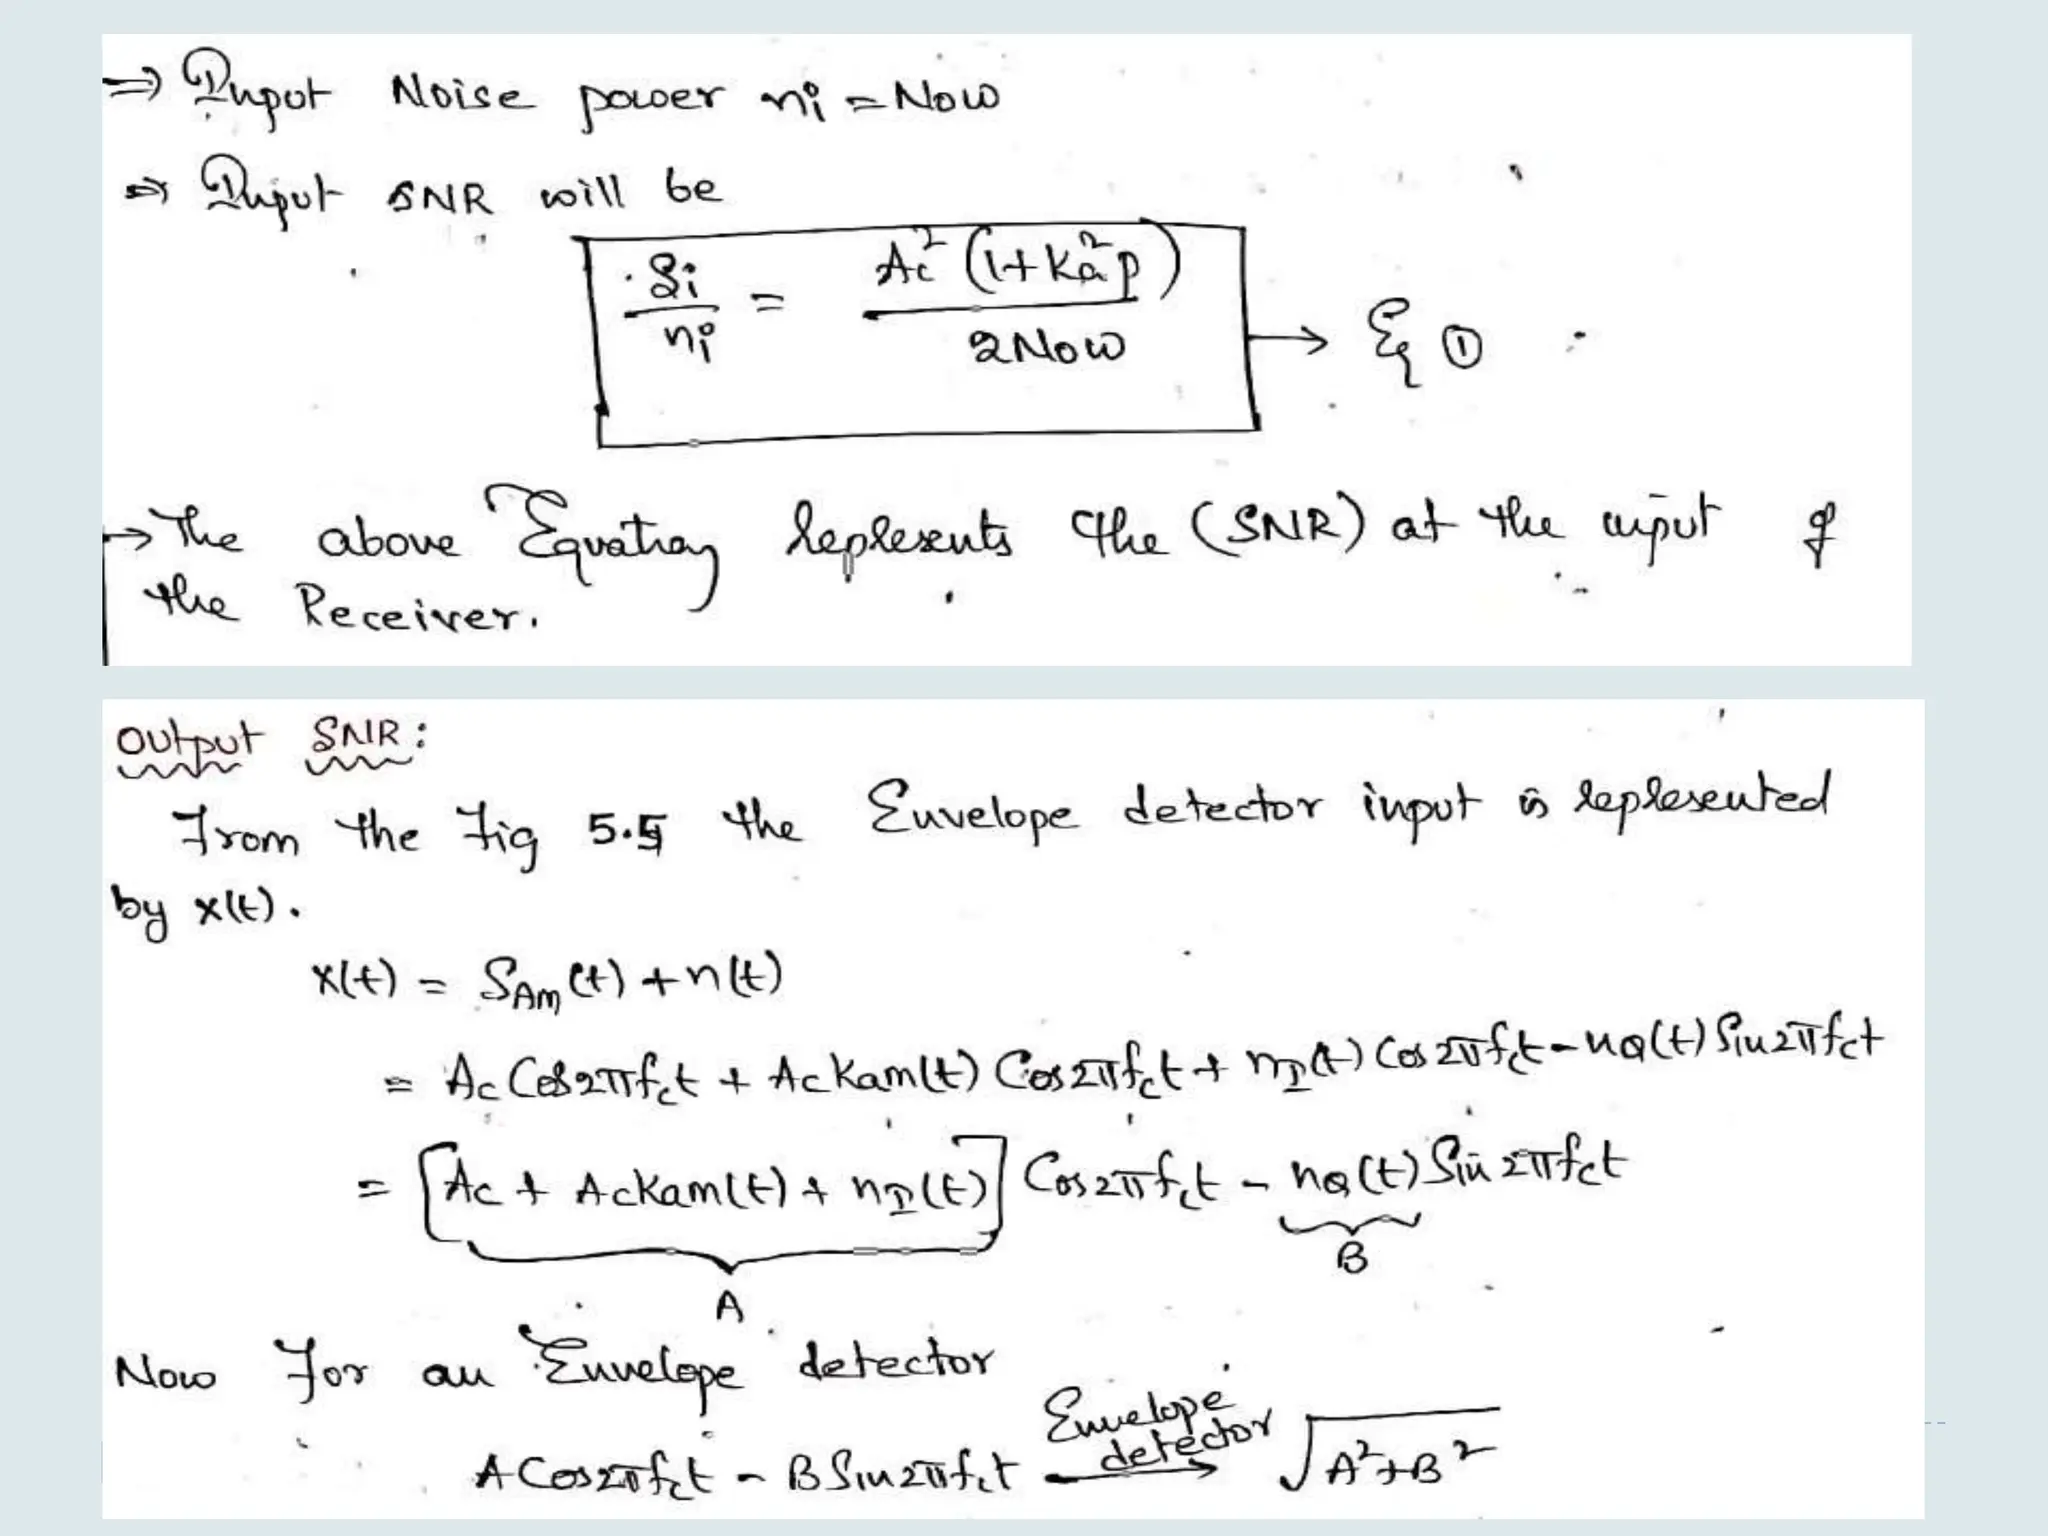 ⇒ Input Noise power ni = Now
⇒ Input SNR will be
Si/ni = Ac² (1+Ka²p) / 2Now → Eq ①
→ The above Equation represents the (SNR) at the input of
the Receiver.
Output SNR:
From the Fig 5.5 the Envelope detector input is represented
by x(t).
x(t) = SAm(t) + n(t)
= Ac Cos2πfct + AcKam(t) Cos2πfct + nI(t) Cos2πfct - nQ(t) Sin2πfct
= [Ac + AcKam(t) + nI(t)] Cos2πfct - nQ(t) Sin2πfct
A B
Now For an Envelope detector
ACos2πfct - BSin2πfct Envelope detector → √A²+B²